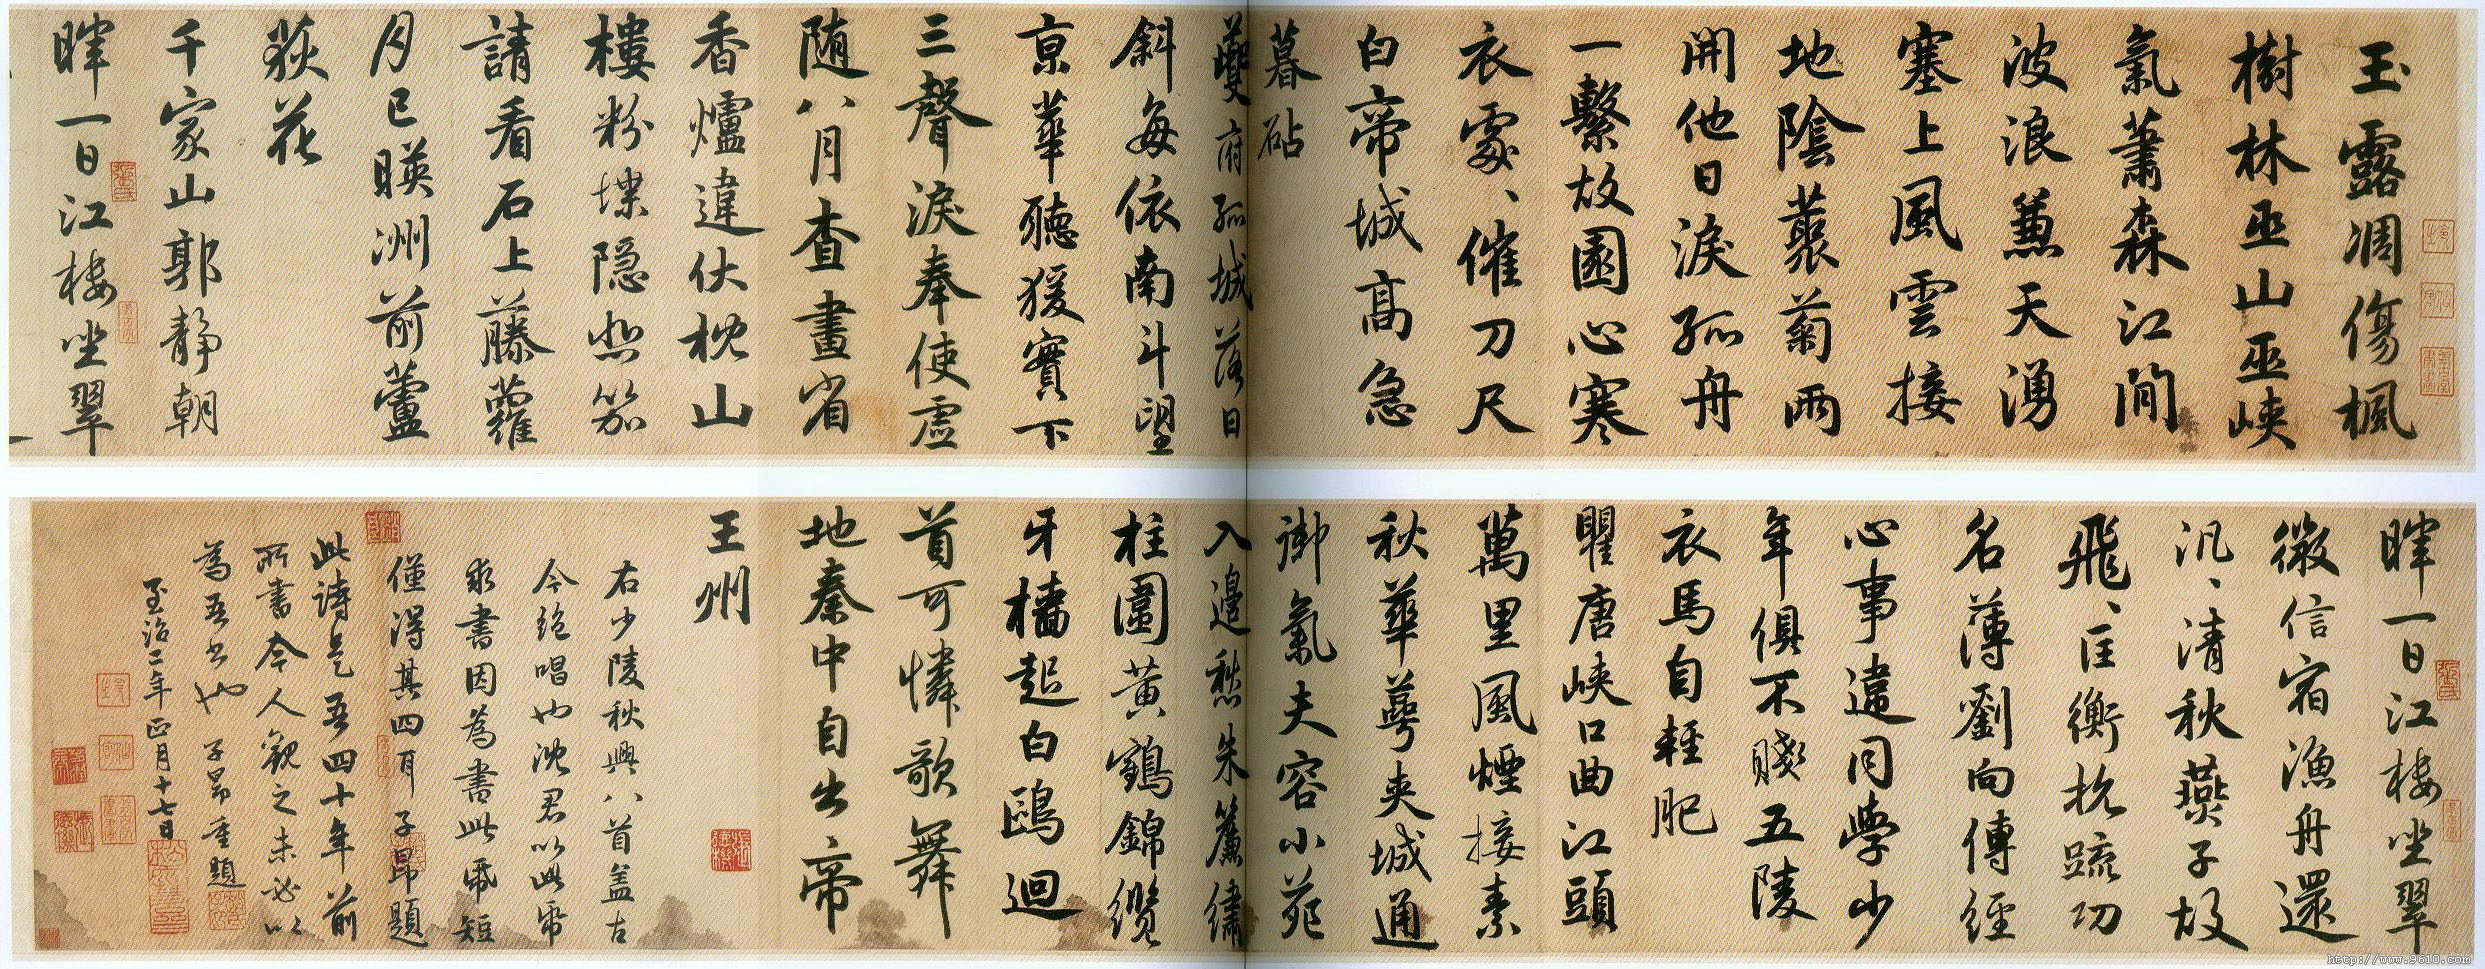 玉露凋傷楓
樹林巫山巫峽
氣蕭森江間
波浪兼天湧
塞上風雲接
地陰藂菊兩
開他日淚孤舟
一繫故園心寒
衣處、催刀尺
白帝城高急
暮砧
夔府孤城落日
斜每依南斗望
京華聽猨實下
三聲淚奉使虛
隨八月查畫省
香爐違伏枕山
樓粉堞隱悲笳
請看石上藤蘿
月已暎洲前蘆
荻花
千家山郭靜朝
暉一日江樓坐翠
暉一日江樓坐翠
微信宿漁舟還
汎、清秋燕子故
飛、匡衡抗疏功
名薄劉向傳經
心事違同學少
年俱不賤五陵
衣馬自輕肥
瞿唐峽口曲江頭
萬里風煙接素
秋華萼夾城通
御氣夫容小苑
入邊愁朱簾繡
柱圍黃鶴錦纜
牙檣起白鷗迴
首可憐歌舞
地秦中自古帝
王州
右少陵秋興八首蓋古
今絕唱也沈君以此帋
求書因為書此帋短
僅得其四耳子昂題
此詩是吾四十年前
所書今人觀之未必以
為吾書也 子昂重題
至治二年正月十七日
http://www.9610.com/